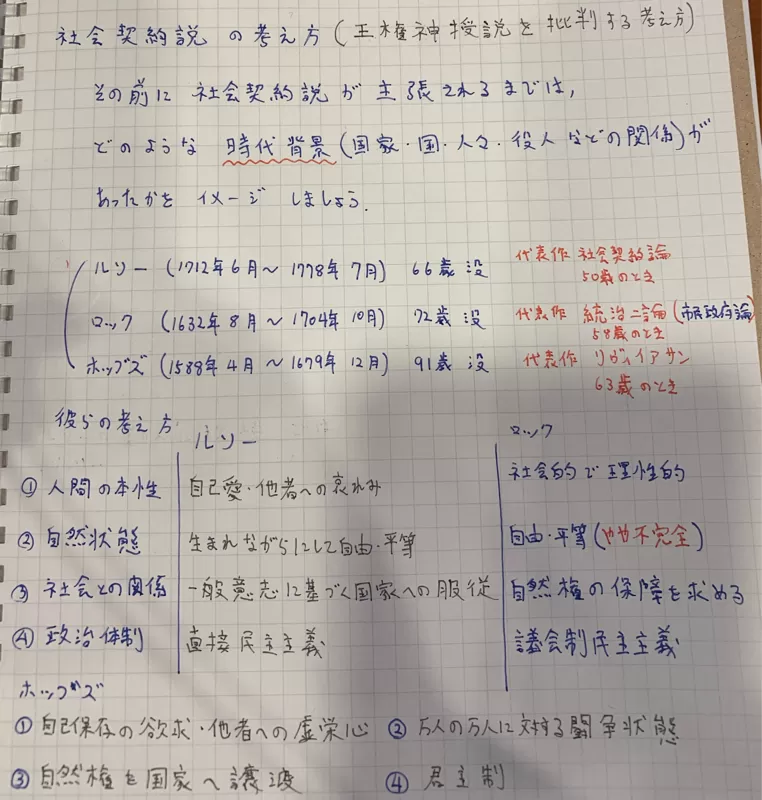 社会契約説 の考え方 (王権神授説を批判する考え方)
その前に 社会契約説が 主張されるまでは,
どのような 時代背景 (国家・国・人々・役人などの関係)が
あったかを イメージ しましょう.
ルソー (1712年6月〜1778年7月) 66歳没 代表作 社会契約論
50歳のとき
ロック (1632年8月〜1704年10月) 72歳没 代表作 統治二論(市民政府論)
58歳のとき
ホッブズ (1588年4月〜1679年12月) 91歳没 代表作 リヴィイアサン
63歳のとき
彼らの考え方 ルソー ロック
① 人間の本性 自己愛・他者への哀れみ 社会的で理性的
② 自然状態 生まれながらにして自由・平等 自由・平等(やや不完全)
③ 社会との関係 一般意志に基づく国家への服従 自然権の保障を求める
④ 政治体制 直接民主主義 議会制民主主義
ホッブズ
① 自己保存の欲求・他者への虚栄心 ② 万人の万人に対する闘争状態
③ 自然権を国家へ譲渡 ④ 君主制